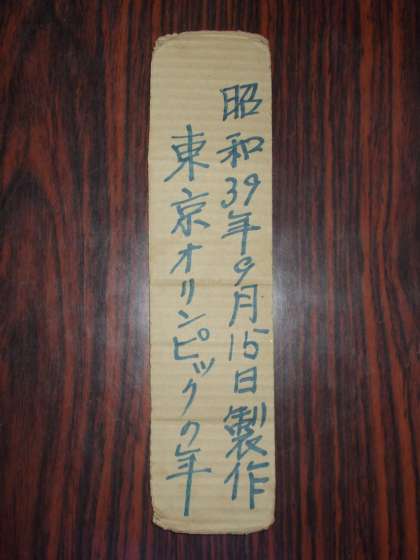 昭和39年9月15日製作
東京オリンピックの年